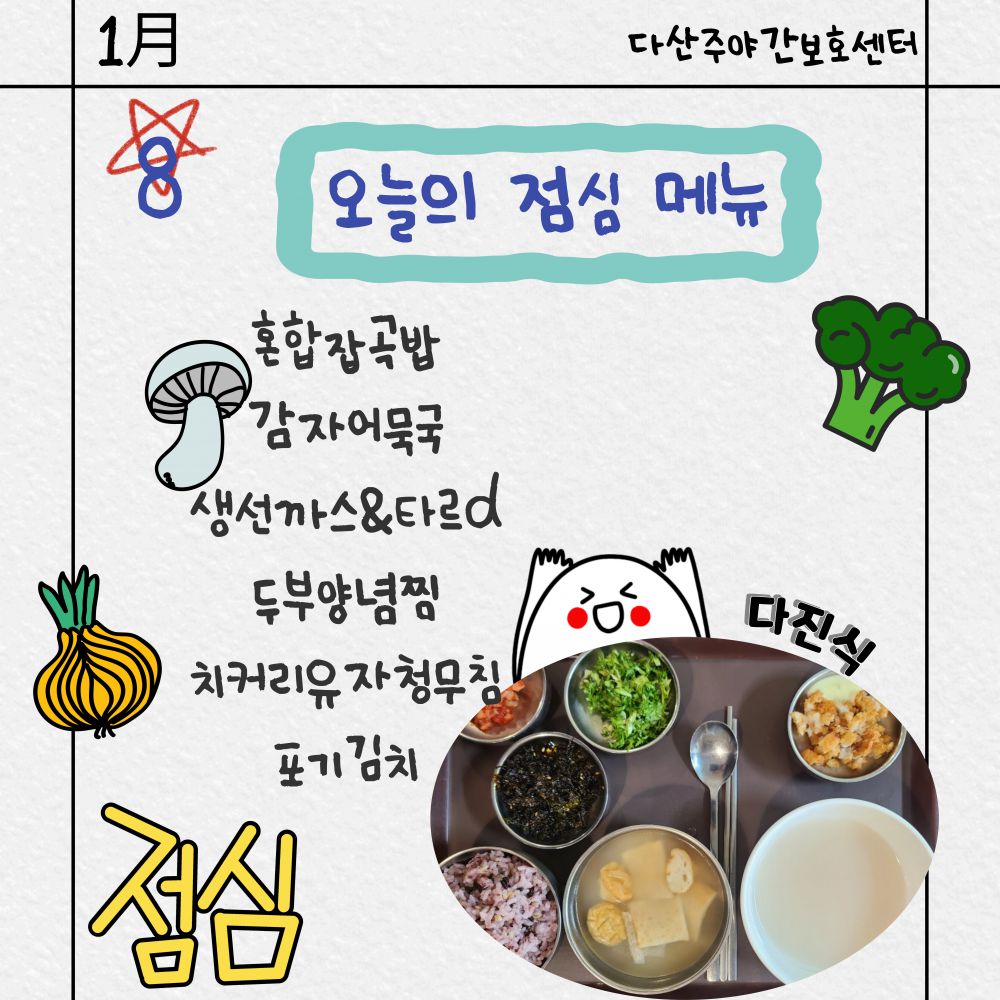 1月
다산주야간보호센터
8
오늘의 점심 메뉴
혼합잡곡밥
감자어묵국
생선까스&타르d
두부양념찜
치커리유자청무침
포기김치
다진식
점심